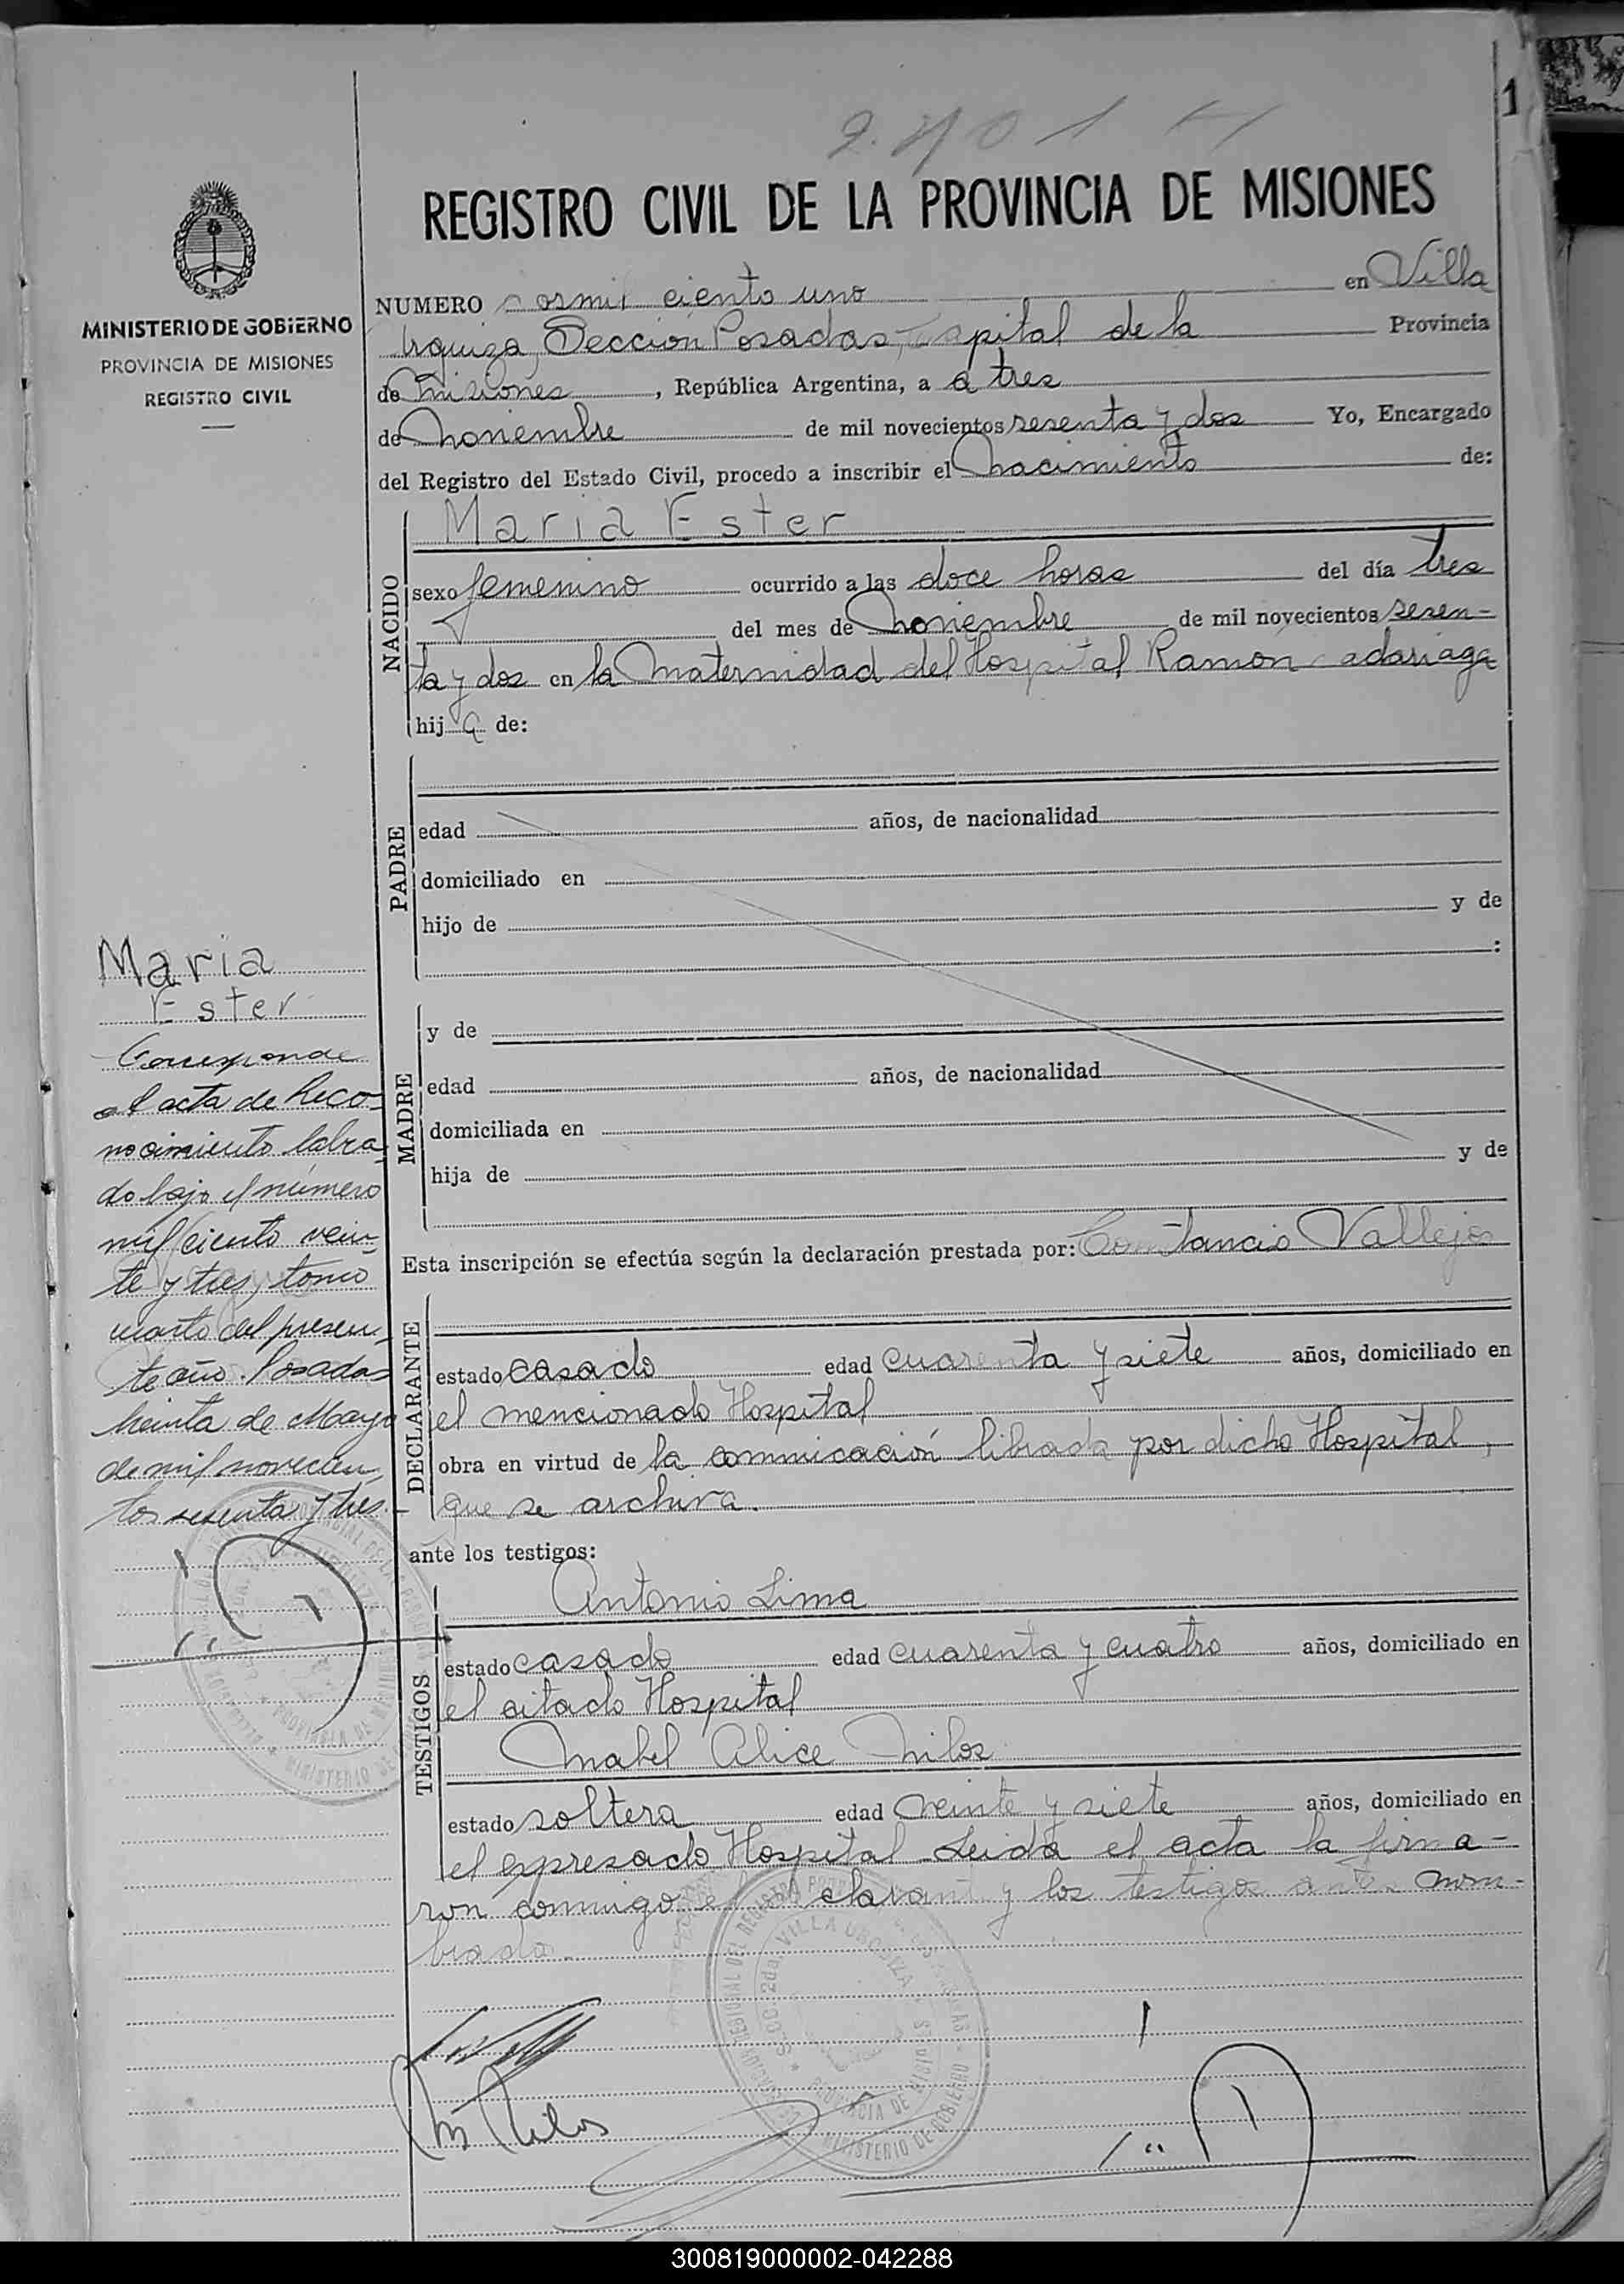 1
REGISTRO CIVIL DE LA PROVINCIA DE MISIONES
MINISTERIO DE GOBIERNO
PROVINCIA DE MISIONES
REGISTRO CIVIL
NUMERO dosmil ciento uno en Villa
Urquiza, Sección Posadas, Capital de la Provincia
de Misiones, República Argentina, a a tres
de noviembre de mil novecientos sesenta y dos Yo, Encargado
del Registro del Estado Civil, procedo a inscribir el nacimiento de:
NACIDO
Maria Ester
sexo femenino ocurrido a las doce horas del día tres
del mes de noviembre de mil novecientos sesen-
ta y dos en la Maternidad del Hospital Ramón adariaga
hija de:
PADRE
edad años, de nacionalidad
domiciliado en
hijo de y de
:
MADRE
y de
edad años, de nacionalidad
domiciliada en
hija de y de
Maria
Ester
Corresponde
al acta de Reco-
nocimiento labra-
do bajo el número
mil ciento vein-
te y tres, tomo
cuarto del presen-
te año. Posadas
treinta de Mayo
de mil novecien-
tos sesenta y tres.-
Esta inscripción se efectúa según la declaración prestada por: Constancio Vallejos
DECLARANTE
estado casado edad cuarenta y siete años, domiciliado en
el mencionado Hospital
obra en virtud de la comunicación librada por dicho Hospital,
que se archiva.
ante los testigos:
TESTIGOS
Antonio Lima
estado casado edad cuarenta y cuatro años, domiciliado en
el citado Hospital
Mabel Alice Milos
estado soltera edad veinte y siete años, domiciliado en
el expresado Hospital Leida el acta la firma-
ron conmigo el declarante y los testigos antes nom-
brados.
SECC. 2da. VILLA URQUIZA
PROVINCIA DE MISIONES
MINISTERIO DE GOBIERNO
300819000002-042288